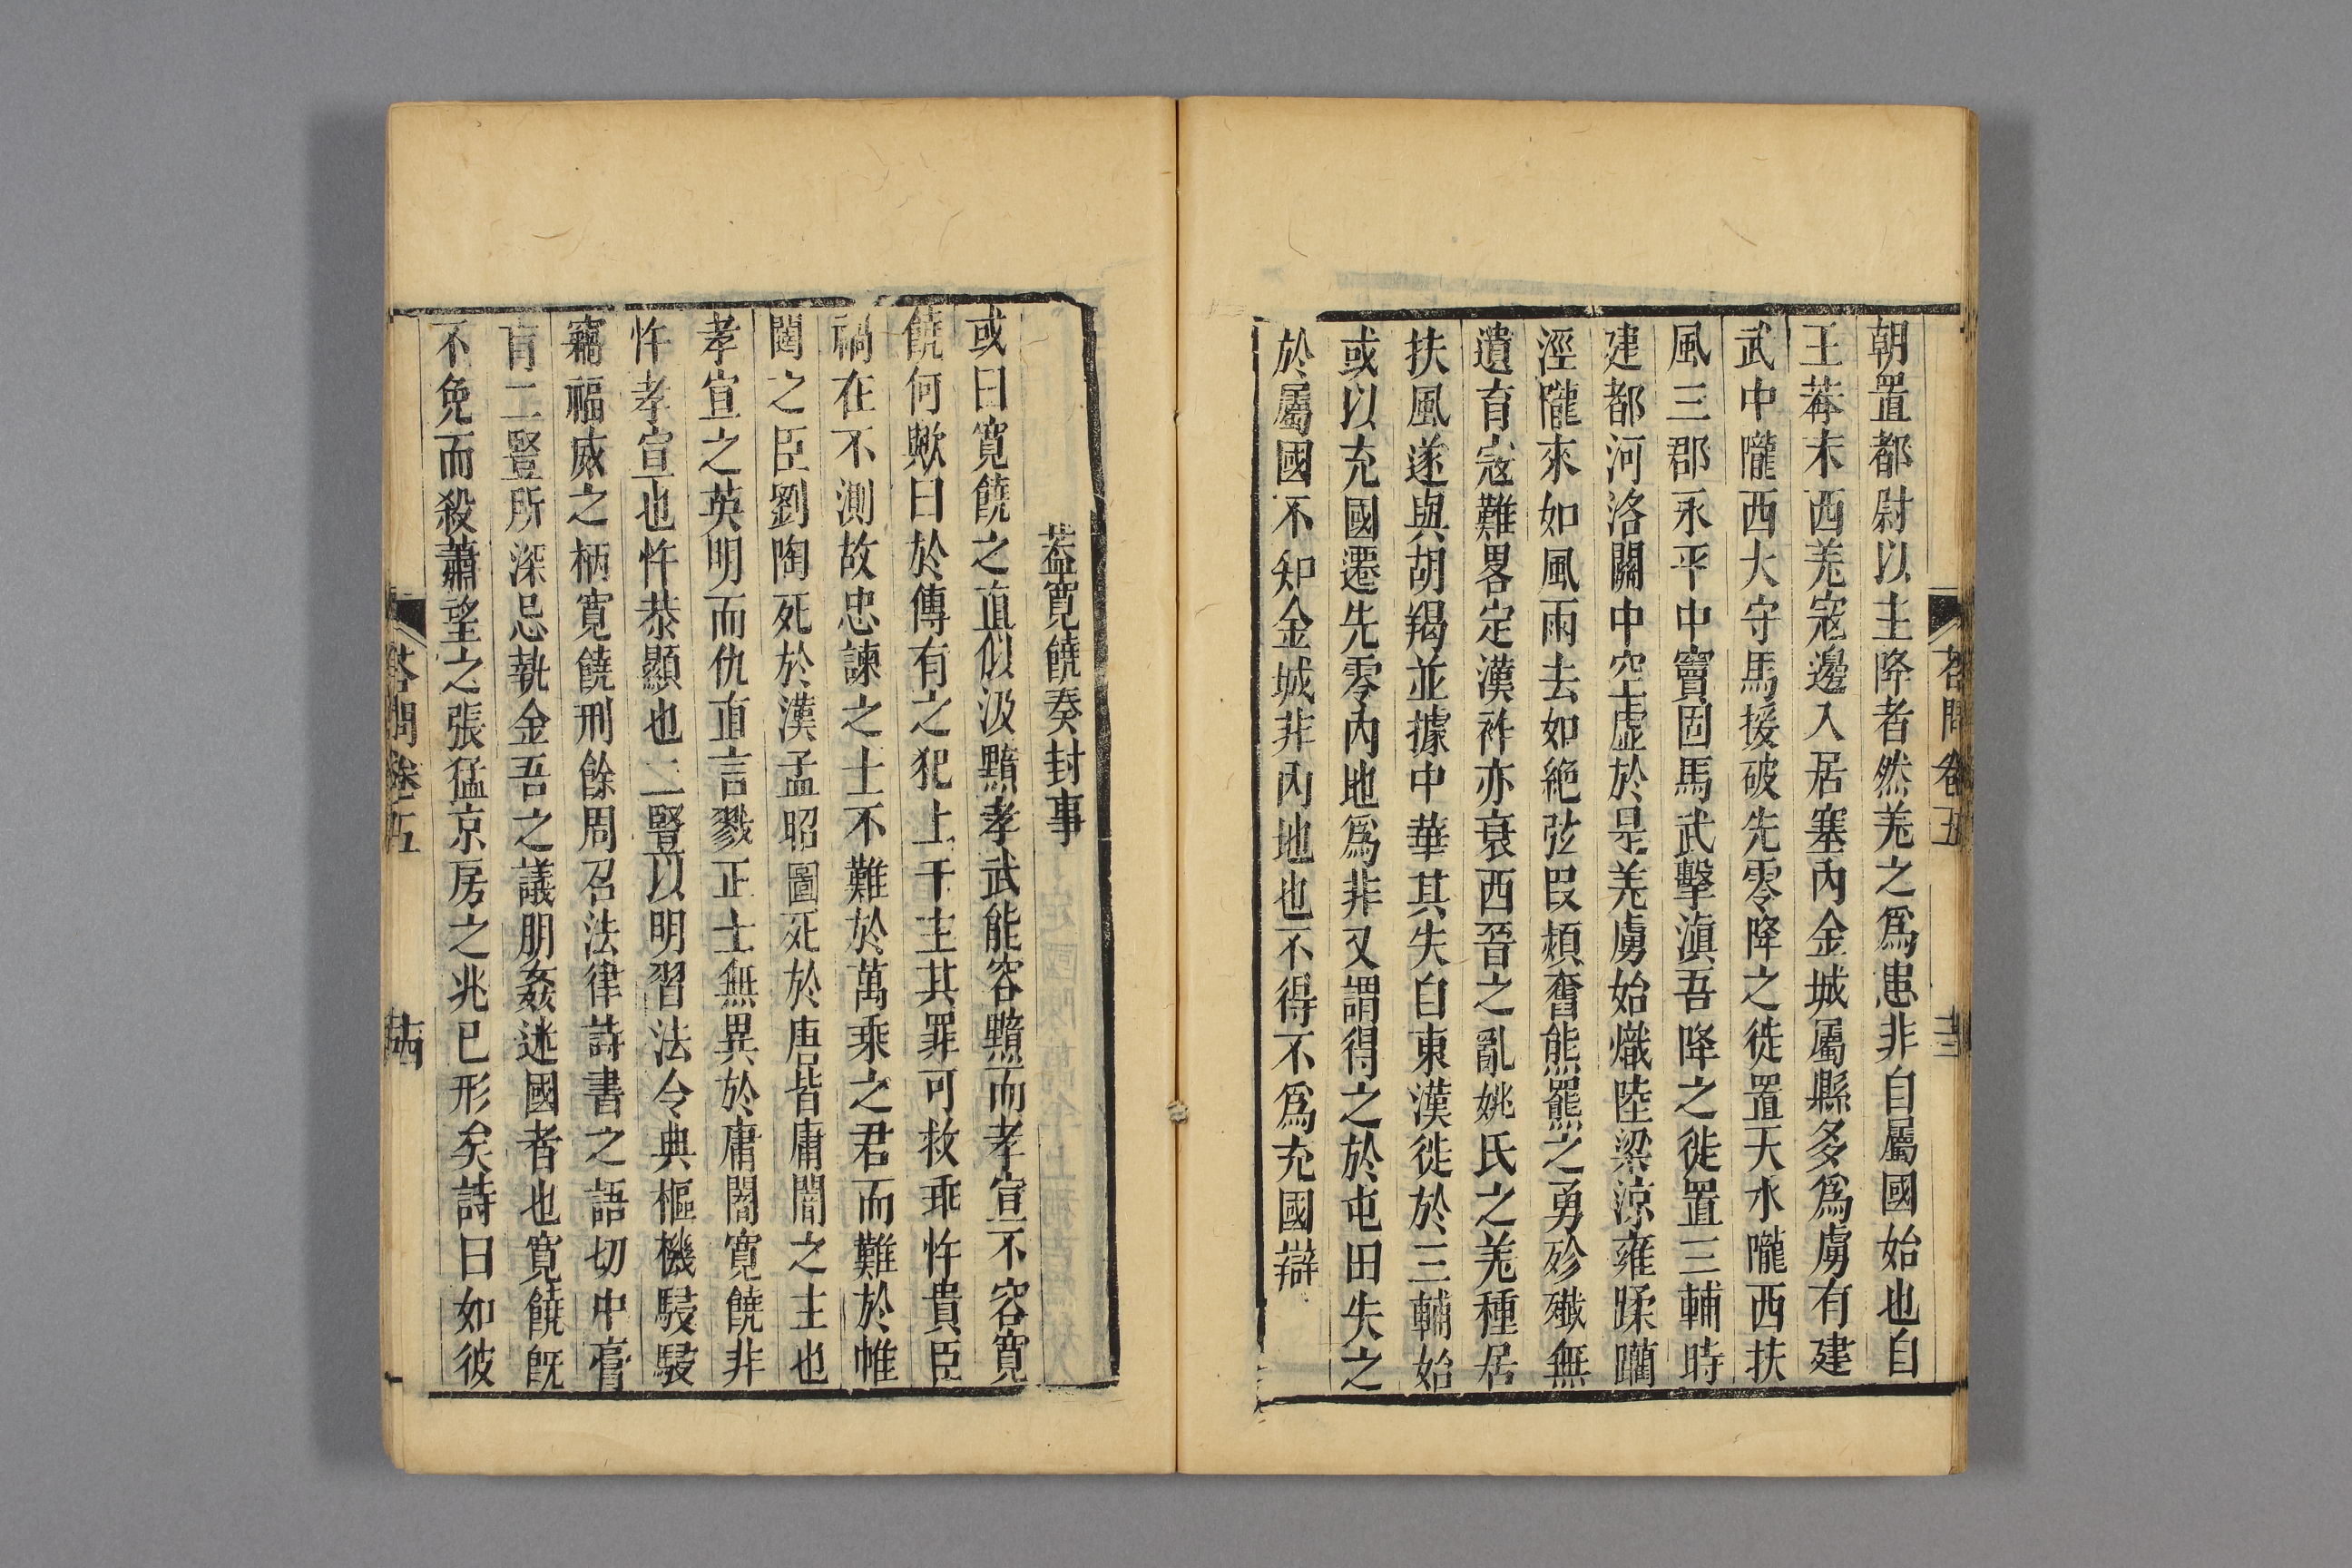 朝置都尉以主降者然羗之爲患非自屬國始也自
王莾末西羗寇邊入居塞內金城屬縣多爲虜有建
武中隴西大守馬援破先零降之徙置天水隴西扶
風三郡永平中竇固馬武擊滇吾降之徙置三輔時
建都河洛關中空虛於是羗虜始熾陸梁涼雍蹂躪
涇隴來如風雨去如絶弦叚熲奮熊羆之勇殄殲無
遺育寇難畧定漢祚亦衰西晉之亂姚氏之羗種居
扶風遂與胡羯並據中華其失自東漢徙於三輔始
或以充國遷先零內地爲非又謂得之於屯田失之
於屬國不知金城非內地也不得不爲充國辯
荅問卷五
葢寬饒奏封事
或曰寬饒之直似汲黯孝武能容黯而孝宣不容寬
饒何歟曰於傳有之犯上干主其罪可救乖忤貴臣
禍在不測故忠諫之士不難於萬乘之君而難於帷
闥之臣劉陶死於漢孟昭圖死於唐皆庸闇之主也
孝宣之英明而仇直言戮正士無異於庸闇寬饒非
忤孝宣也忤恭顯也二豎以明習法令典樞機駸駸
竊福威之柄寬饒刑餘周召法律詩書之語切中膏
肓二豎所深忌執金吾之議朋姦迷國者也寬饒旣
不免而殺蕭望之張猛京房之兆已形矣詩曰如彼
荅問卷五